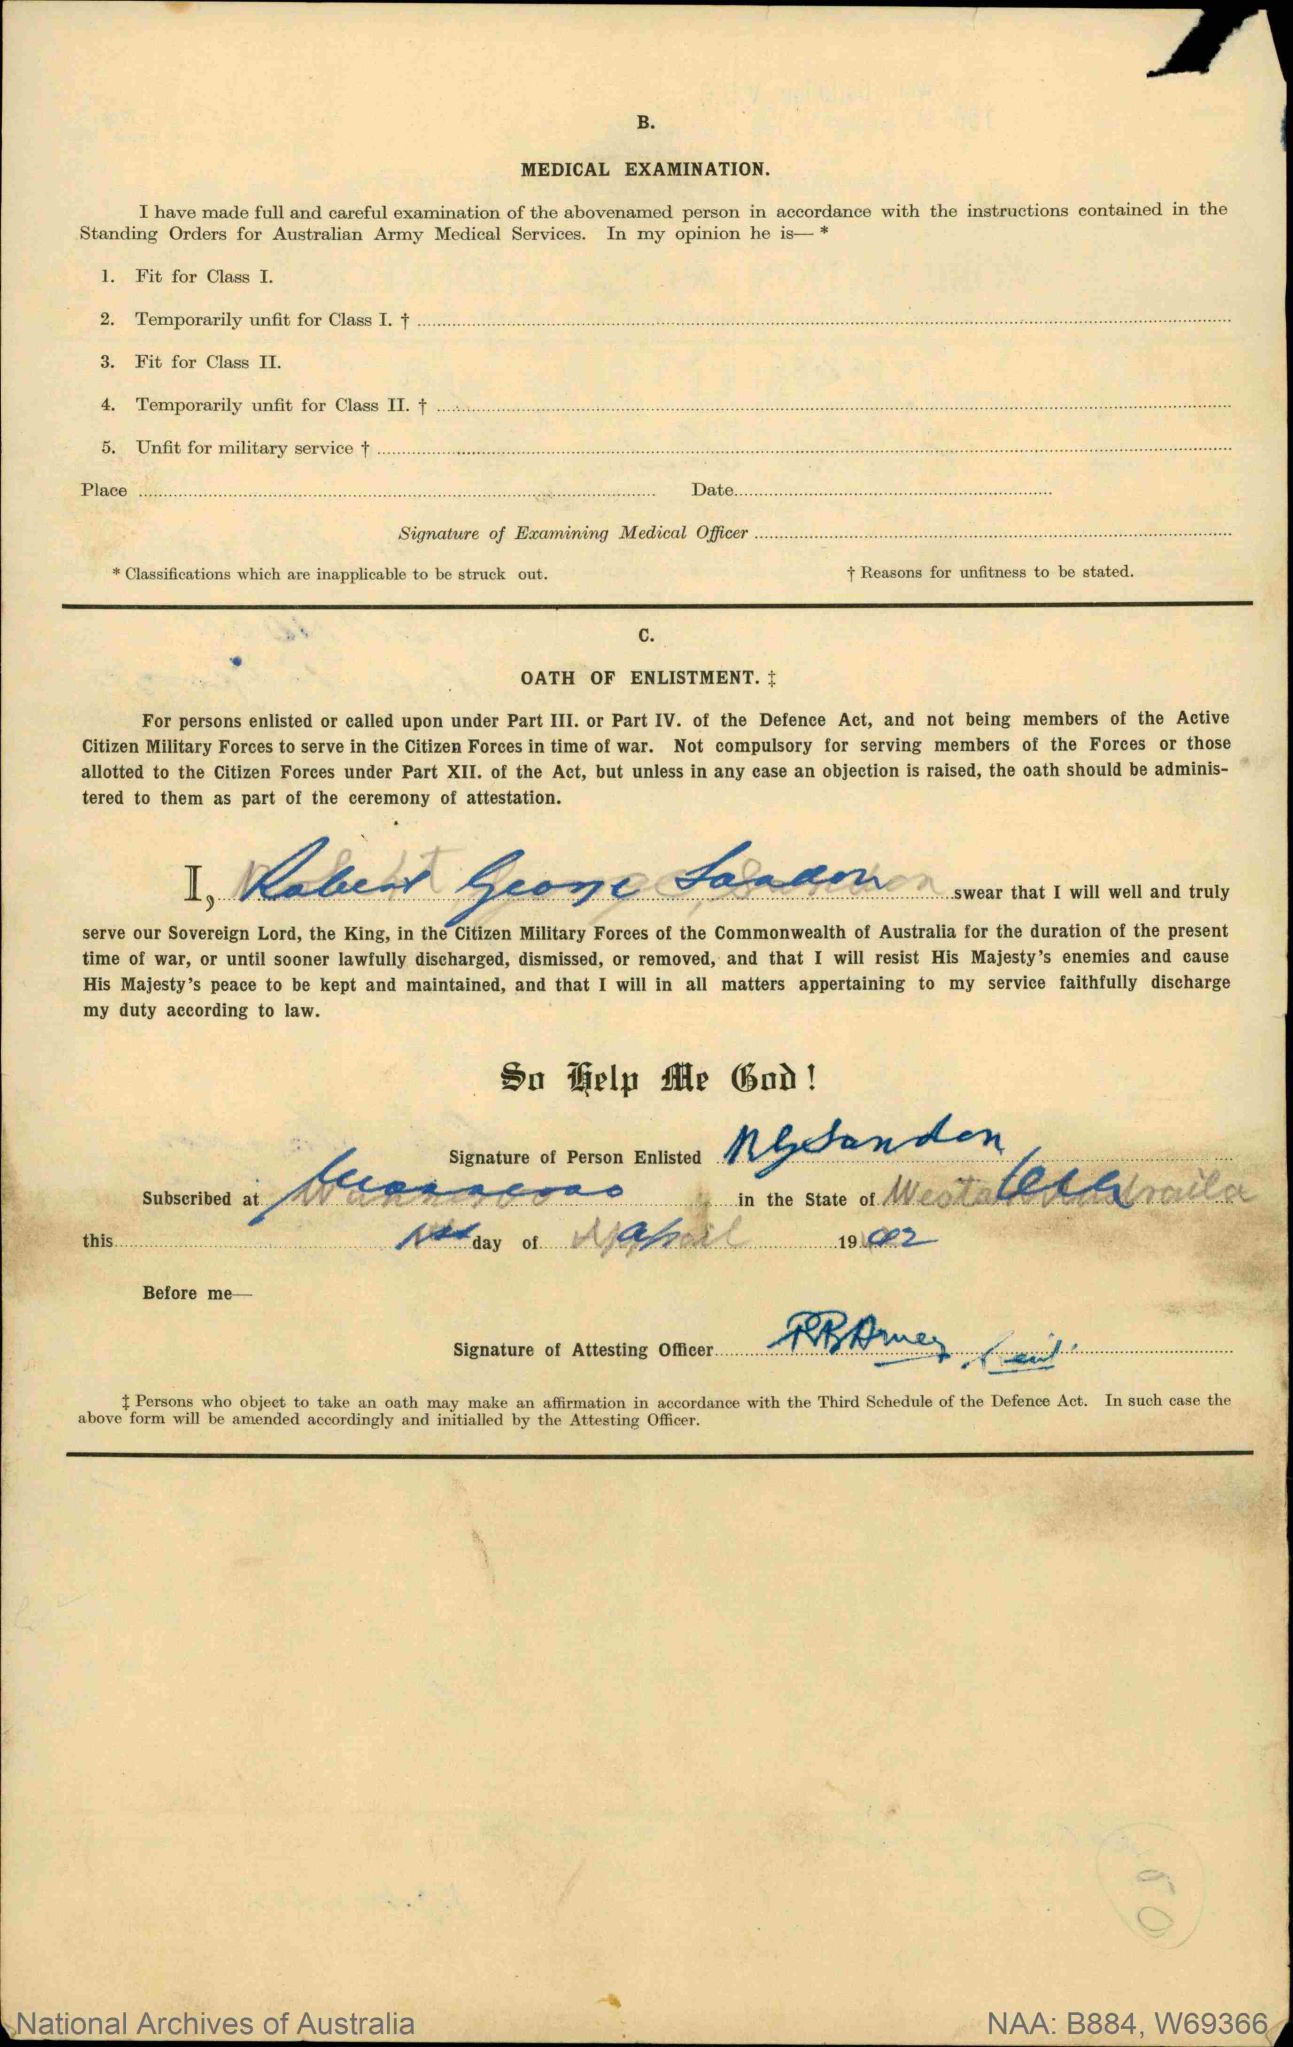 B.
MEDICAL EXAMINATION.
I have made full and careful examination of the abovenamed person in accordance with the instructions contained in the
Standing Orders for Australian Army Medical Services. In my opinion he is— *
1. Fit for Class I.
2. Temporarily unfit for Class I. †
3. Fit for Class II.
4. Temporarily unfit for Class II. †
5. Unfit for military service †
Place Date
Signature of Examining Medical Officer
* Classifications which are inapplicable to be struck out. † Reasons for unfitness to be stated.
C.
OATH OF ENLISTMENT. ‡
For persons enlisted or called upon under Part III. or Part IV. of the Defence Act, and not being members of the Active
Citizen Military Forces to serve in the Citizen Forces in time of war. Not compulsory for serving members of the Forces or those
allotted to the Citizen Forces under Part XII. of the Act, but unless in any case an objection is raised, the oath should be adminis-
tered to them as part of the ceremony of attestation.
I, Robert George Sandon swear that I will well and truly
serve our Sovereign Lord, the King, in the Citizen Military Forces of the Commonwealth of Australia for the duration of the present
time of war, or until sooner lawfully discharged, dismissed, or removed, and that I will resist His Majesty's enemies and cause
His Majesty's peace to be kept and maintained, and that I will in all matters appertaining to my service faithfully discharge
my duty according to law.
So Help Me God!
Signature of Person Enlisted R G Sandon
Subscribed at in the State of
this 1st day of April 1942
Before me—
Signature of Attesting Officer
‡ Persons who object to take an oath may make an affirmation in accordance with the Third Schedule of the Defence Act. In such case the
above form will be amended accordingly and initialled by the Attesting Officer.
National Archives of Australia NAA: B884, W69366